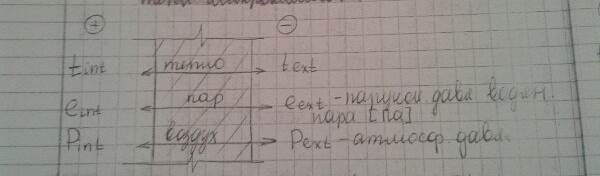 + −
tint тепло text
eint пар eext - парциал. давл. водян.
пара [Па]
Pint воздух Pext - атмосф. давл.